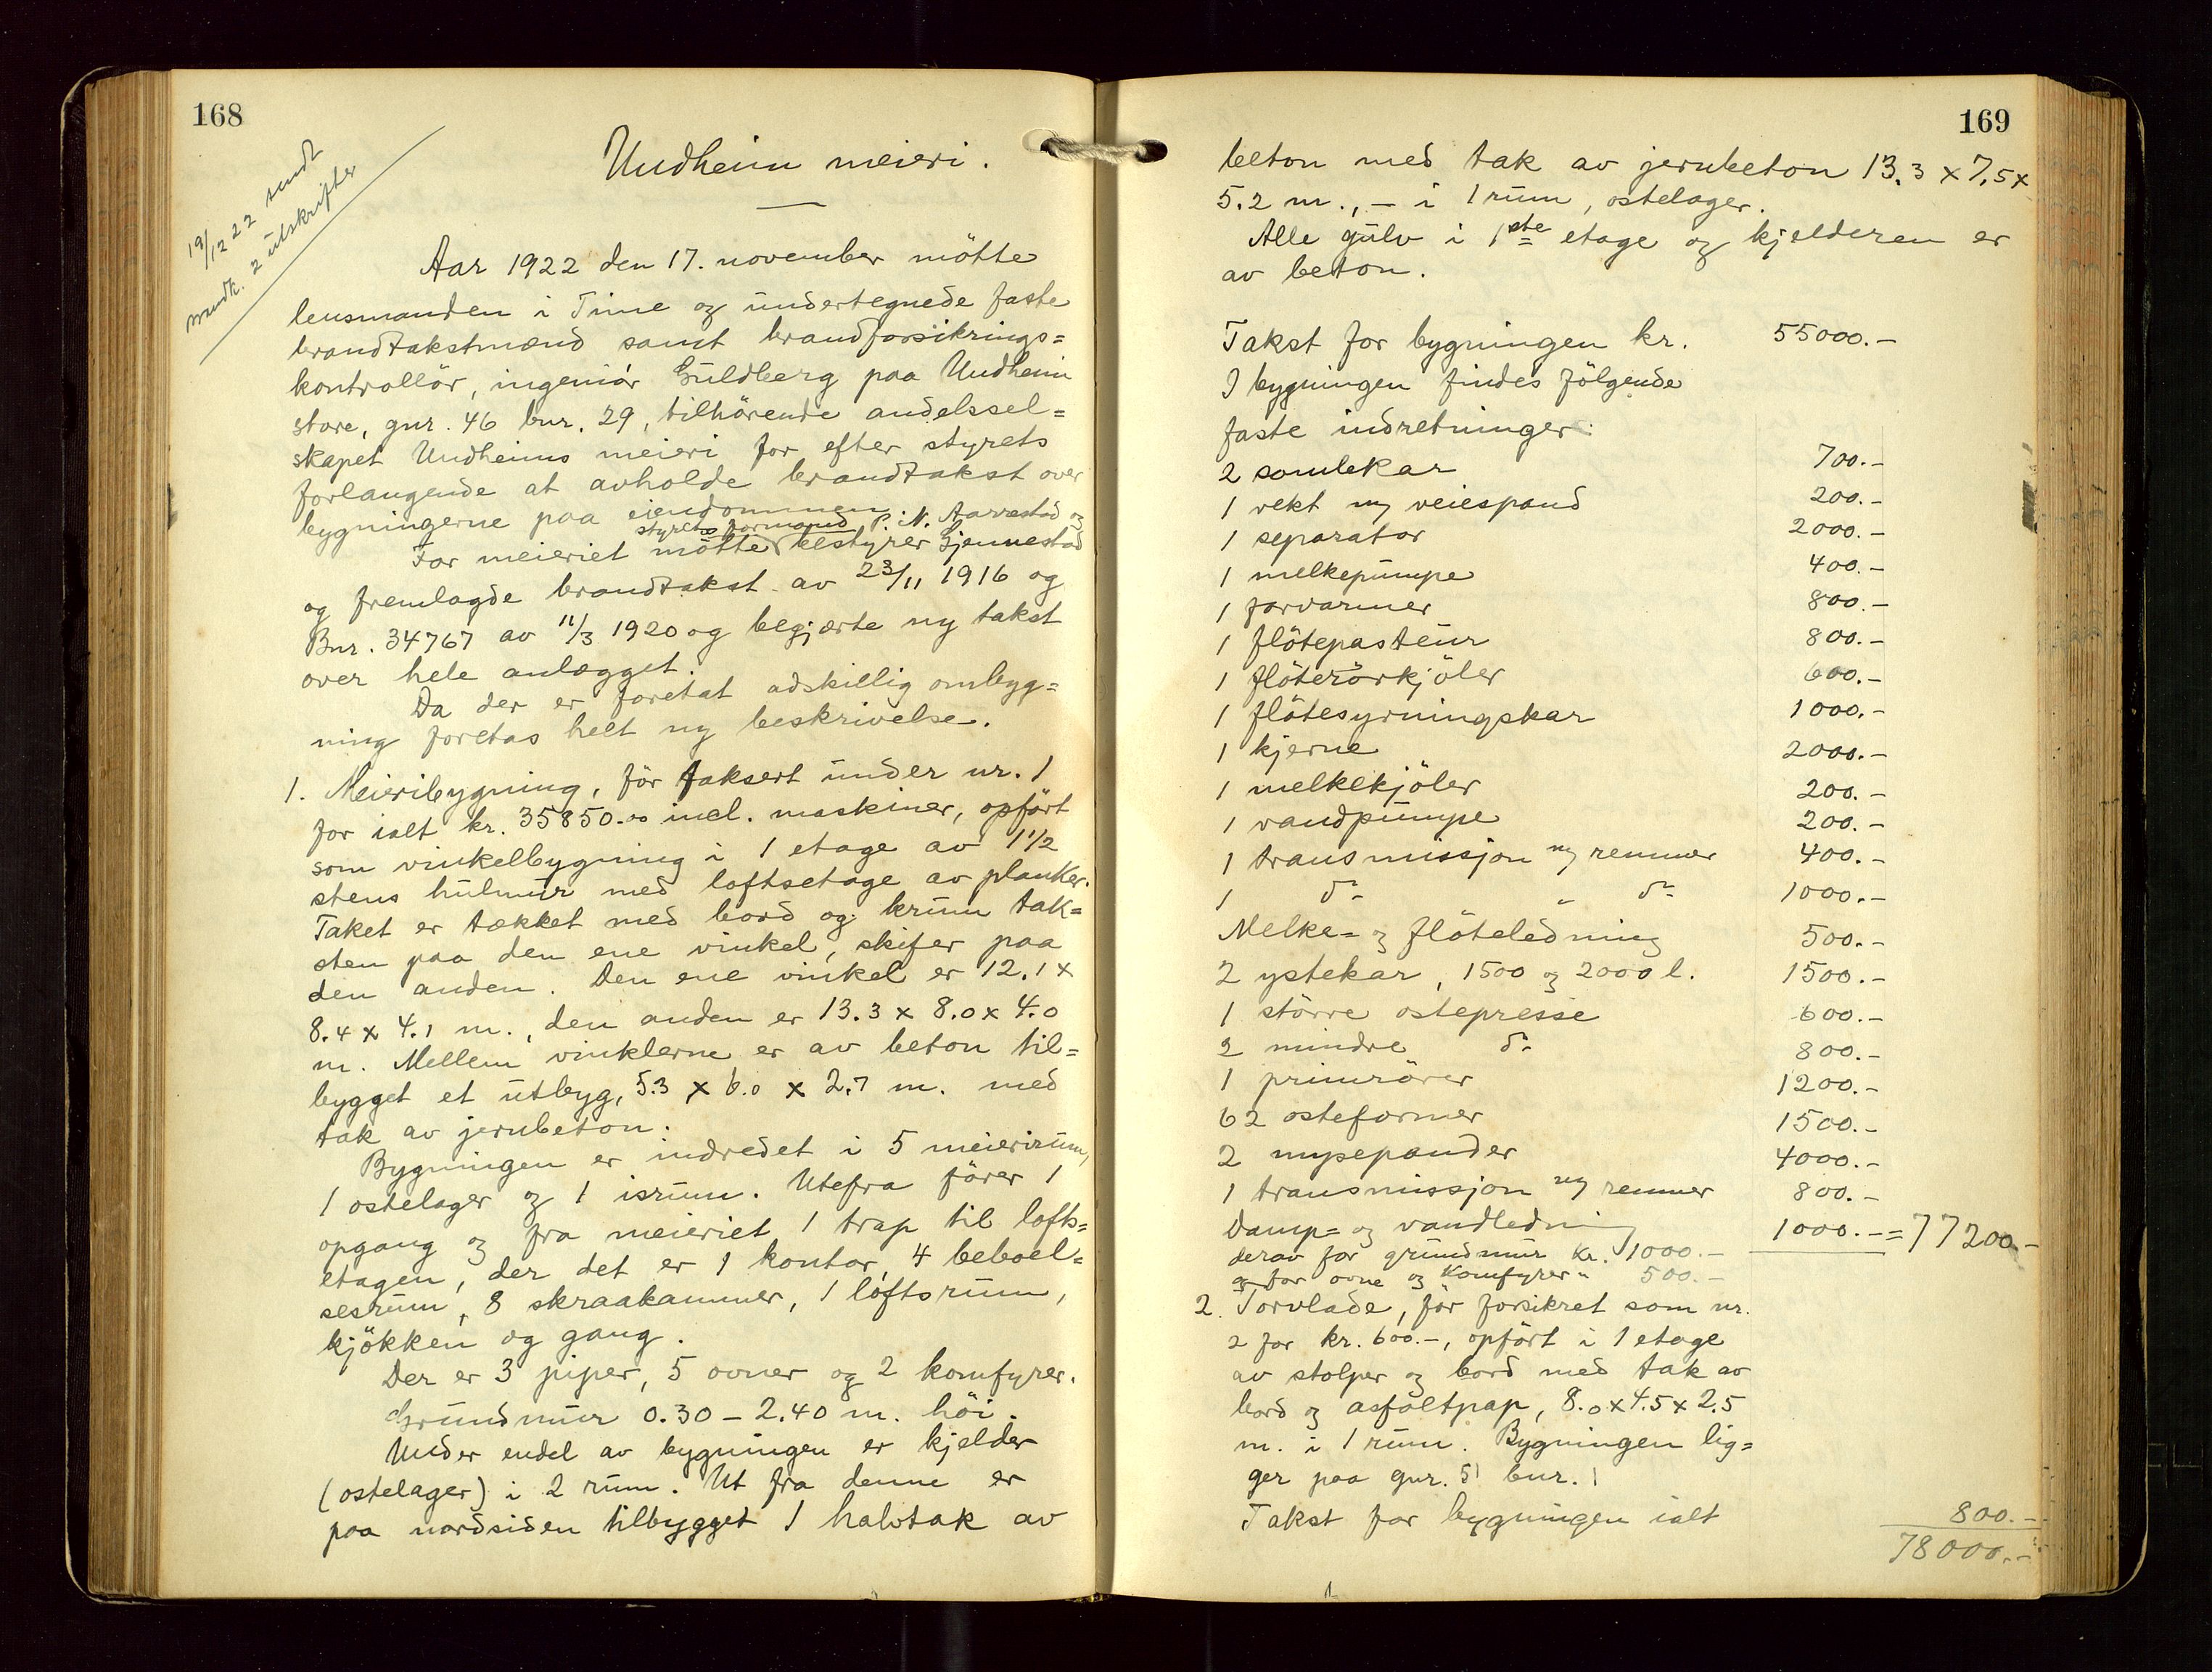 168
19/12 22 sendt
brandk. 2 utskrifter
Undheim meieri.
Aar 1922 den 17. november mötte
lensmanden i Time og undertegnede faste
brandtakstmænd samt brandforsikrings=
kontrollör, ingeniör Guldberg paa Undheim
store, gnr. 46 bnr. 29, tilhörende andelssel=
skapet Undheims meieri for efter styrets
forlangende at avholde brandtakst over
bygningerne paa eiendommen.
styrets formand P. N. Aarrestad og
For meieriet mötte bestyrer Gjennestad
og fremlagde brandtakst av 23/11 1916 og
Bnr. 34767 av 11/3 1920 og begjærte ny takst
over hele anlægget.
Da der er foretat adskillig ombyg=
ning foretas helt ny beskrivelse.
1. Meieribygning, för taksert under nr. 1
for ialt kr. 35850.00 incl. maskiner, opfört
som vinkelbygning i 1 etage av 1 1/2
stens hulmur med loftsetage av planker.
Taket er tækket med bord og krum tak=
sten paa den ene vinkel, skifer paa
den anden. Den ene vinkel er 12.1 x
8.4 x 4.1 m., den anden er 13.3 x 8.0 x 4.0
m. Mellem vinklerne er av beton til=
bygget et utbyg, 5.3 x 6.0 x 2.7 m. med
tak av jernbeton.
Bygningen er indredet i 5 meierirum,
1 ostelager og 1 isrum. Utefra förer 1
opgang og fra meieriet 1 trap til lofts=
etagen, der det er 1 kontor, 4 beboel=
sesrum, 8 skraakammer, 1 loftsrum,
kjökken og gang.
Der er 3 piper, 5 ovner og 2 komfyrer.
Grundmur 0.30 – 2.40 m. höi.
Under endel av bygningen er kjelder
(ostelager) i 2 rum. Ut fra denne er
paa nordsiden tilbygget 1 halvtak av
169
beton med tak av jernbeton 13.3 x 7.5 x
5.2 m., – i 1 rum, ostelager.
Alle gulv i 1ste etage og kjelderen er
av beton.
Takst for bygningen kr. 55000.–
I bygningen findes fölgende
faste indretninger:
2 samlekar 700.–
1 vekt m/ veiespand 200.–
1 separator 2000.–
1 melkepumpe 400.–
1 forvarmer 800.–
1 flötepasteur 800.–
1 flöterörkjöler 600.–
1 flötesyrningskar 1000.–
1 kjerne 2000.–
1 melkekjöler 200.–
1 vandpumpe 200.–
1 transmissjon m/ remmer 400.–
1 do „ do 1000.–
Melke= og flöteledning 500.–
2 ystekar, 1500 og 2000 l. 1500.–
1 större ostepresse 600.–
2 mindre do 800.–
1 primrörer 1200.–
62 osteformer 1500.–
2 mysepander 4000.–
1 transmissjon m/ remmer 800.–
Damp= og vandledning 1000.– = 77200.–
derav for grundmur kr. 1000.–
og for ovne og komfyrer „ 500.–
2. Torvlade, för forsikret som nr.
2 for kr. 600.–, opfört i 1 etage
av stolper og bord med tak av
bord og asfaltpap, 8.0 x 4.5 x 2.5
m. i 1 rum. Bygningen lig=
ger paa gnr. 51 bnr. 1
Takst for bygningen ialt 800.–
78000.–